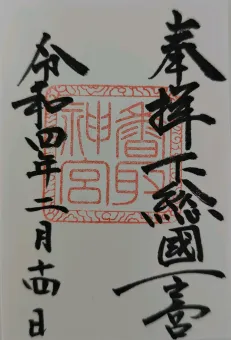 奉拝下総國一之宮
香取神宮
令和四年二月十四日